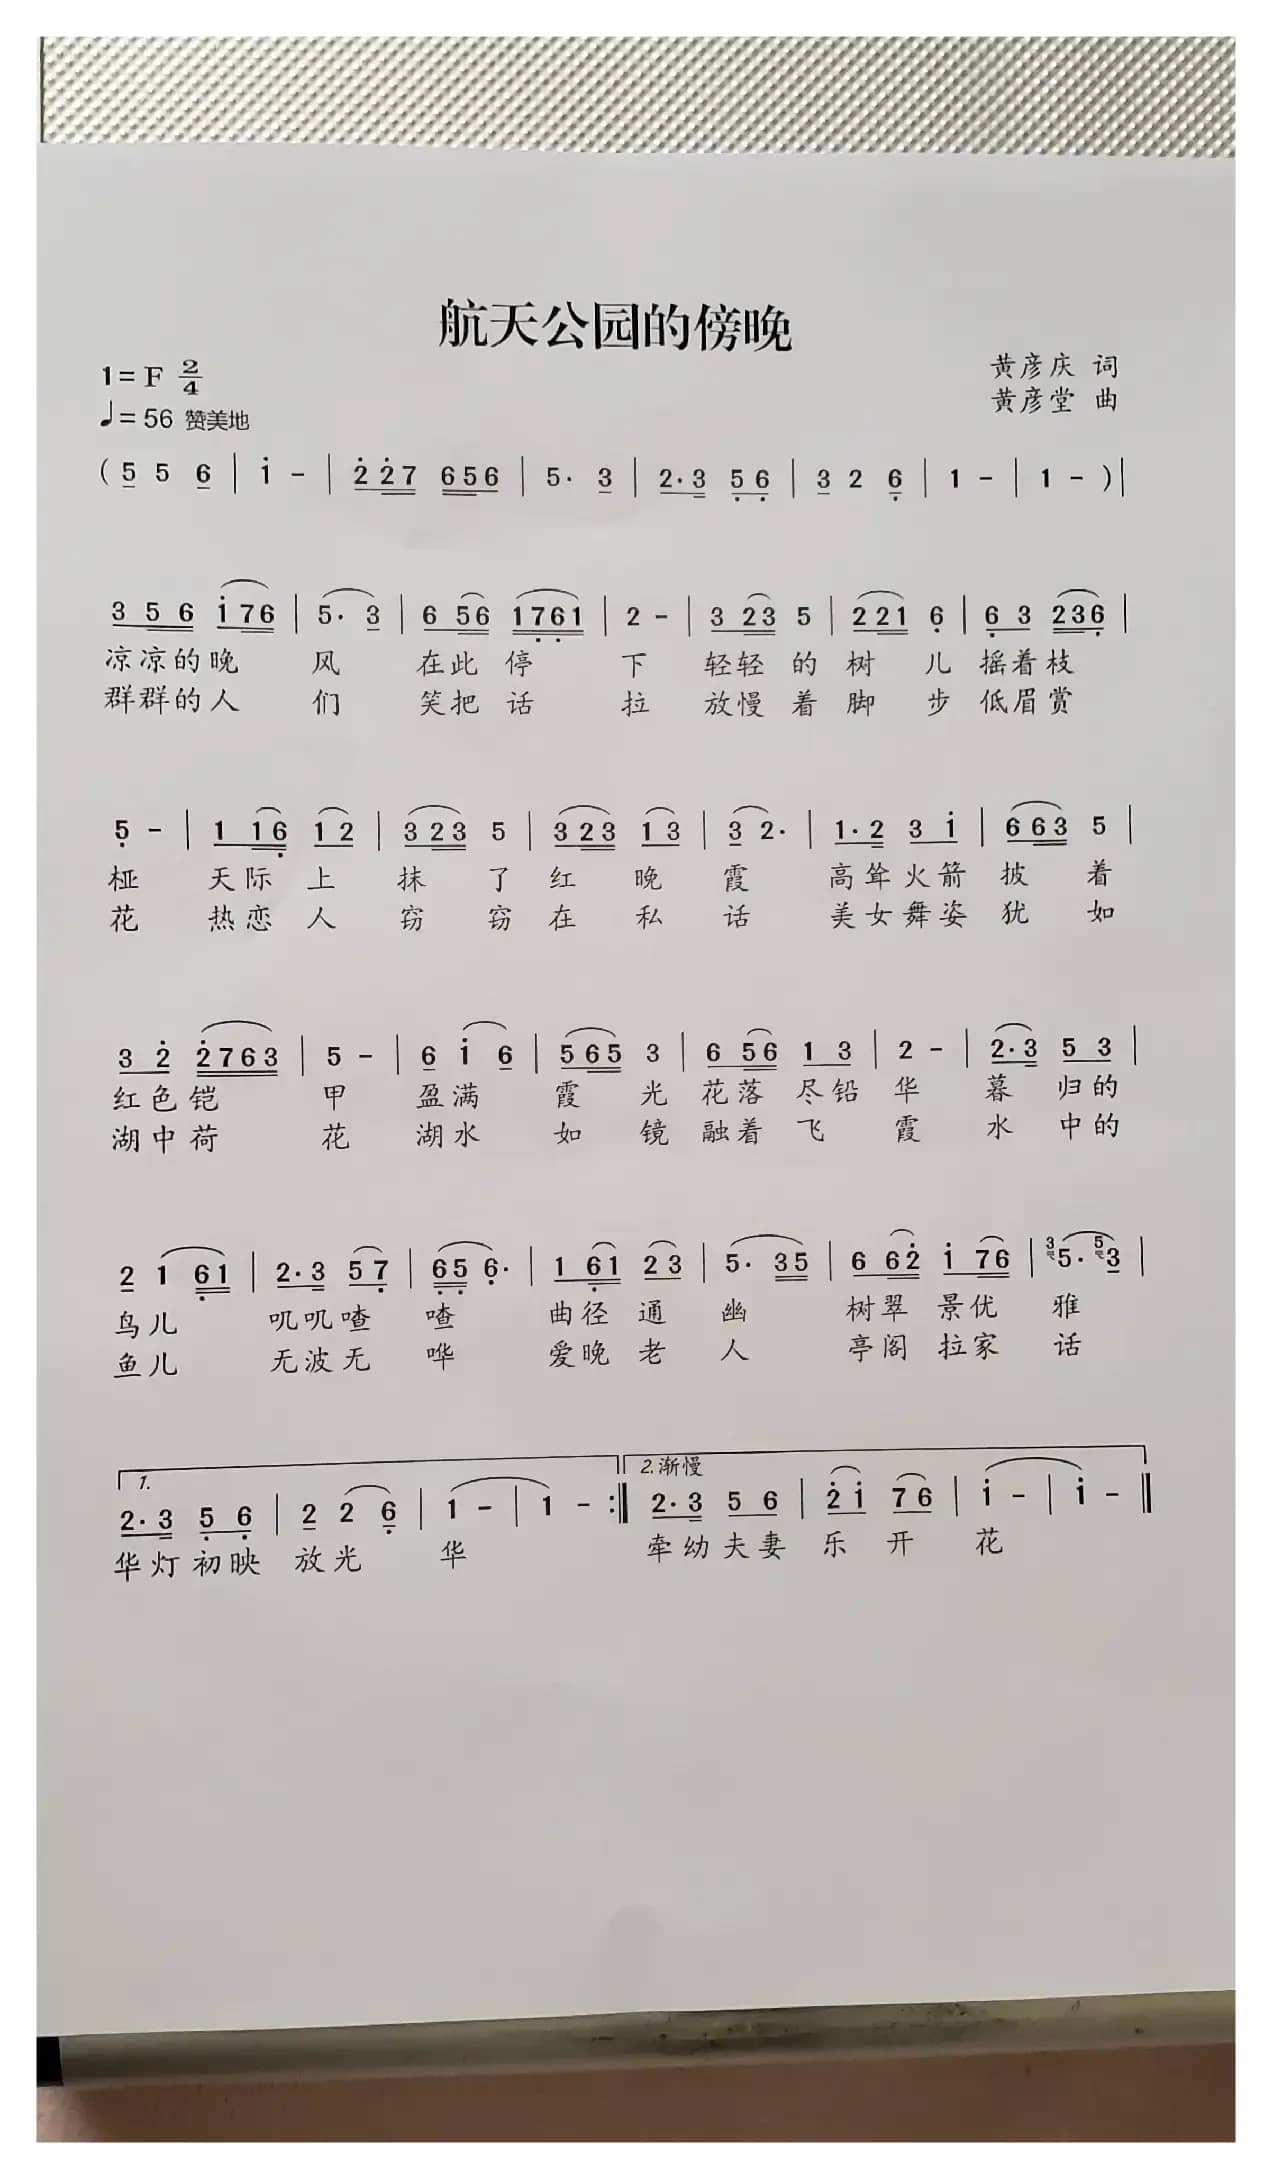 航天公园的傍晚
1=F 2/4
黄彦庆 词
♩=56 赞美地
黄彦堂 曲
( 5 5 6 | i - | 2 2 7 6 5 6 | 5· 3 | 2·3 5 6 | 3 2 6 | 1 - | 1 - ) |
3 5 6 i 7 6 | 5· 3 | 6 5 6 1 7 6 1 | 2 - | 3 2 3 5 | 2 2 1 6 | 6 3 2 3 6 |
凉凉的晚 风 在此停 下 轻轻的树 儿 摇着枝
群群的人 们 笑把话 拉 放慢着脚 步 低眉赏
5 - | 1 1 6 1 2 | 3 2 3 5 | 3 2 3 1 3 | 3 2· | 1·2 3 i | 6 6 3 5 |
桠 天际上 抹 了 红 晚 霞 高耸火箭 披 着
花 热恋人 窃 窃 在 私 话 美女舞姿 犹 如
3 2 2 7 6 3 | 5 - | 6 i 6 | 5 6 5 3 | 6 5 6 1 3 | 2 - | 2·3 5 3 |
红色铠 甲 盈满 霞 光 花落尽铅 华 暮 归的
湖中荷 花 湖水 如 镜 融着飞 霞 水 中的
2 1 6 1 | 2·3 5 7 | 6 5 6· | 1 6 1 2 3 | 5· 3 5 | 6 6 2 i 7 6 | 3 5· 5 3 |
鸟儿 叽叽喳 喳 曲径通 幽 树翠景优 雅
鱼儿 无波无 哗 爱晚老 人 亭阁拉家 话
1. 2.渐慢
2·3 5 6 | 2 2 6 | 1 - | 1 - :‖ 2·3 5 6 | 2 i 7 6 | i - | i - ‖
华灯初映 放光 华 牵幼夫妻 乐 开 花